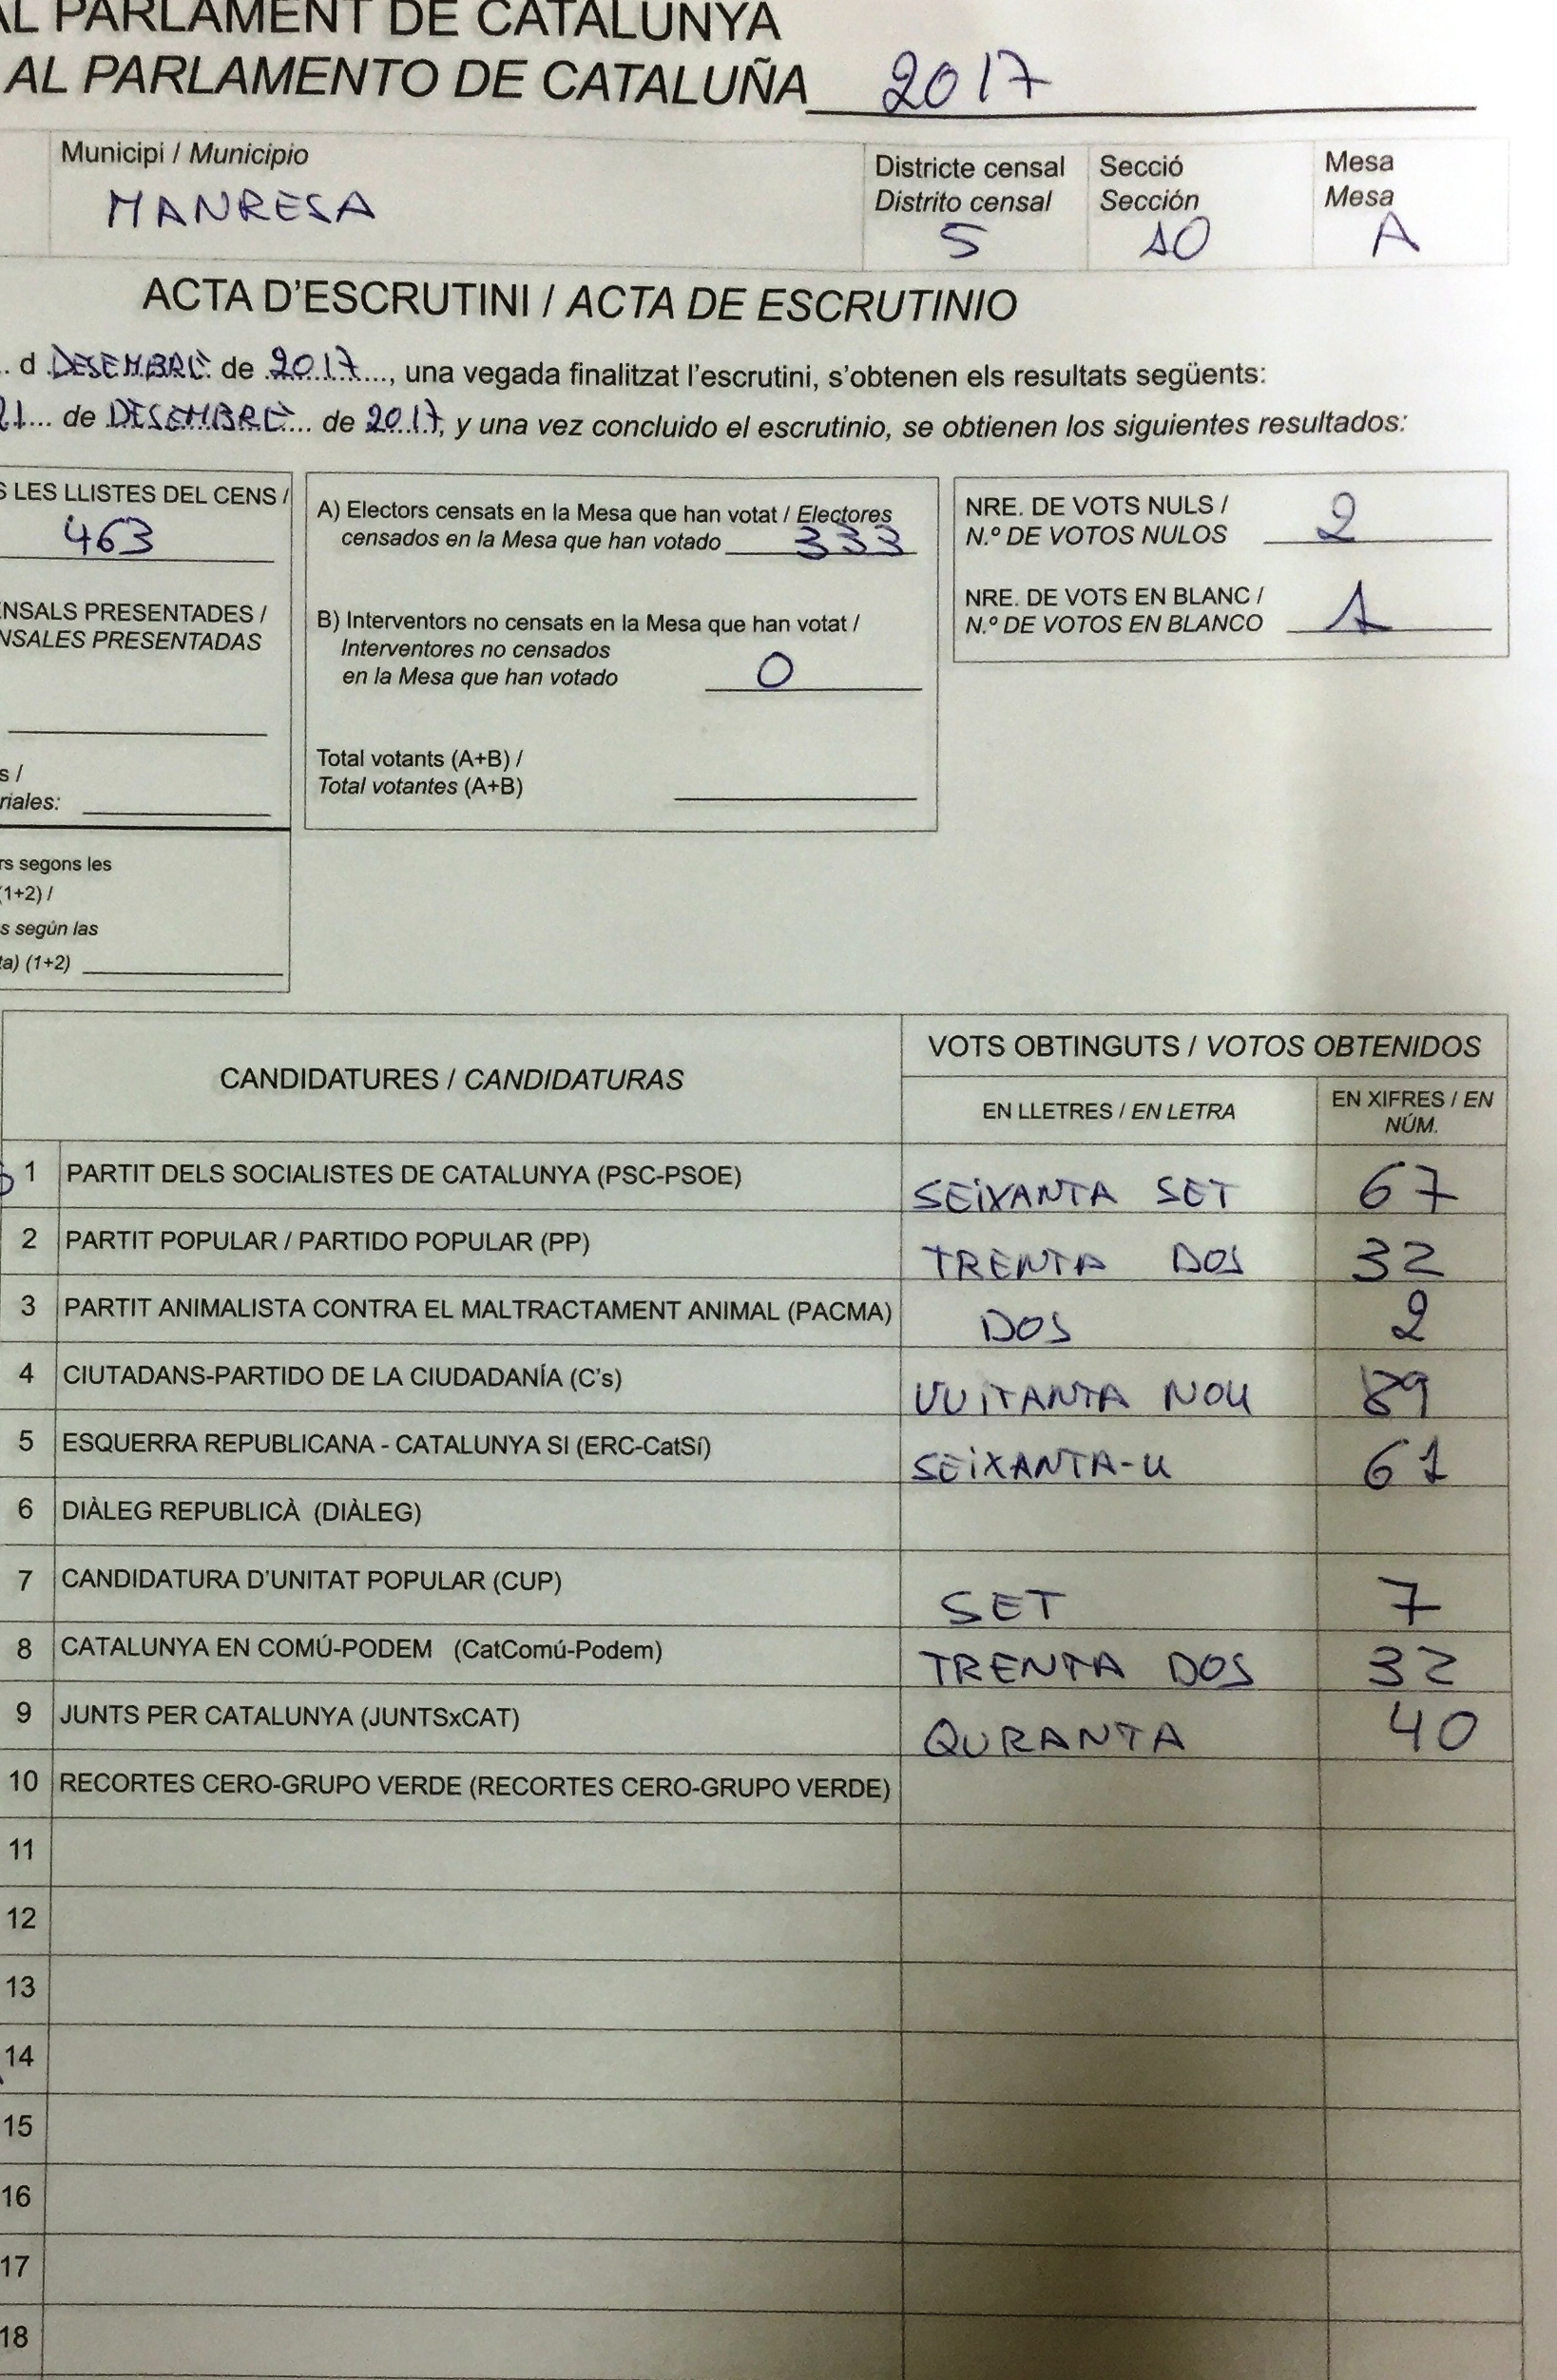 AL PARLAMENT DE CATALUNYA
AL PARLAMENTO DE CATALUÑA 2017
Municipi / Municipio
MANRESA
Districte censal
Distrito censal
5
Secció
Sección
10
Mesa
Mesa
A
ACTA D'ESCRUTINI / ACTA DE ESCRUTINIO
d DESEMBRE de 2017, una vegada finalitzat l'escrutini, s'obtenen els resultats següents:
21 de DESEMBRE de 2017, y una vez concluido el escrutinio, se obtienen los siguientes resultados:
S LES LLISTES DEL CENS /
463
ENSALS PRESENTADES /
NSALES PRESENTADAS
s /
riales:
rs segons les
(1+2) /
s según las
ta) (1+2)
A) Electors censats en la Mesa que han votat / Electores
censados en la Mesa que han votado 333
B) Interventors no censats en la Mesa que han votat /
Interventores no censados
en la Mesa que han votado 0
Total votants (A+B) /
Total votantes (A+B)
NRE. DE VOTS NULS /
N.º DE VOTOS NULOS 2
NRE. DE VOTS EN BLANC /
N.º DE VOTOS EN BLANCO 1
CANDIDATURES / CANDIDATURAS
VOTS OBTINGUTS / VOTOS OBTENIDOS
EN LLETRES / EN LETRA
EN XIFRES / EN
NÚM.
1 PARTIT DELS SOCIALISTES DE CATALUNYA (PSC-PSOE) SEIXANTA SET 67
2 PARTIT POPULAR / PARTIDO POPULAR (PP) TRENTA DOS 32
3 PARTIT ANIMALISTA CONTRA EL MALTRACTAMENT ANIMAL (PACMA) DOS 2
4 CIUTADANS-PARTIDO DE LA CIUDADANÍA (C's) VUITANTA NOU 89
5 ESQUERRA REPUBLICANA - CATALUNYA SI (ERC-CatSí) SEIXANTA-U 61
6 DIÀLEG REPUBLICÀ (DIÀLEG)
7 CANDIDATURA D'UNITAT POPULAR (CUP) SET 7
8 CATALUNYA EN COMÚ-PODEM (CatComú-Podem) TRENTA DOS 32
9 JUNTS PER CATALUNYA (JUNTSxCAT) QURANTA 40
10 RECORTES CERO-GRUPO VERDE (RECORTES CERO-GRUPO VERDE)
11
12
13
14
15
16
17
18